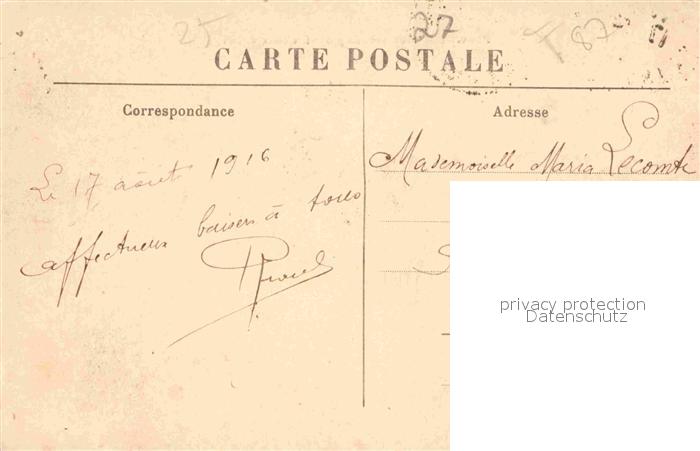 25
27
87
CARTE POSTALE
Correspondance
Adresse
Le 17 août 1916
affectueux baisers à tous
Mademoiselle Maria Lecomte
privacy protection
Datenschutz